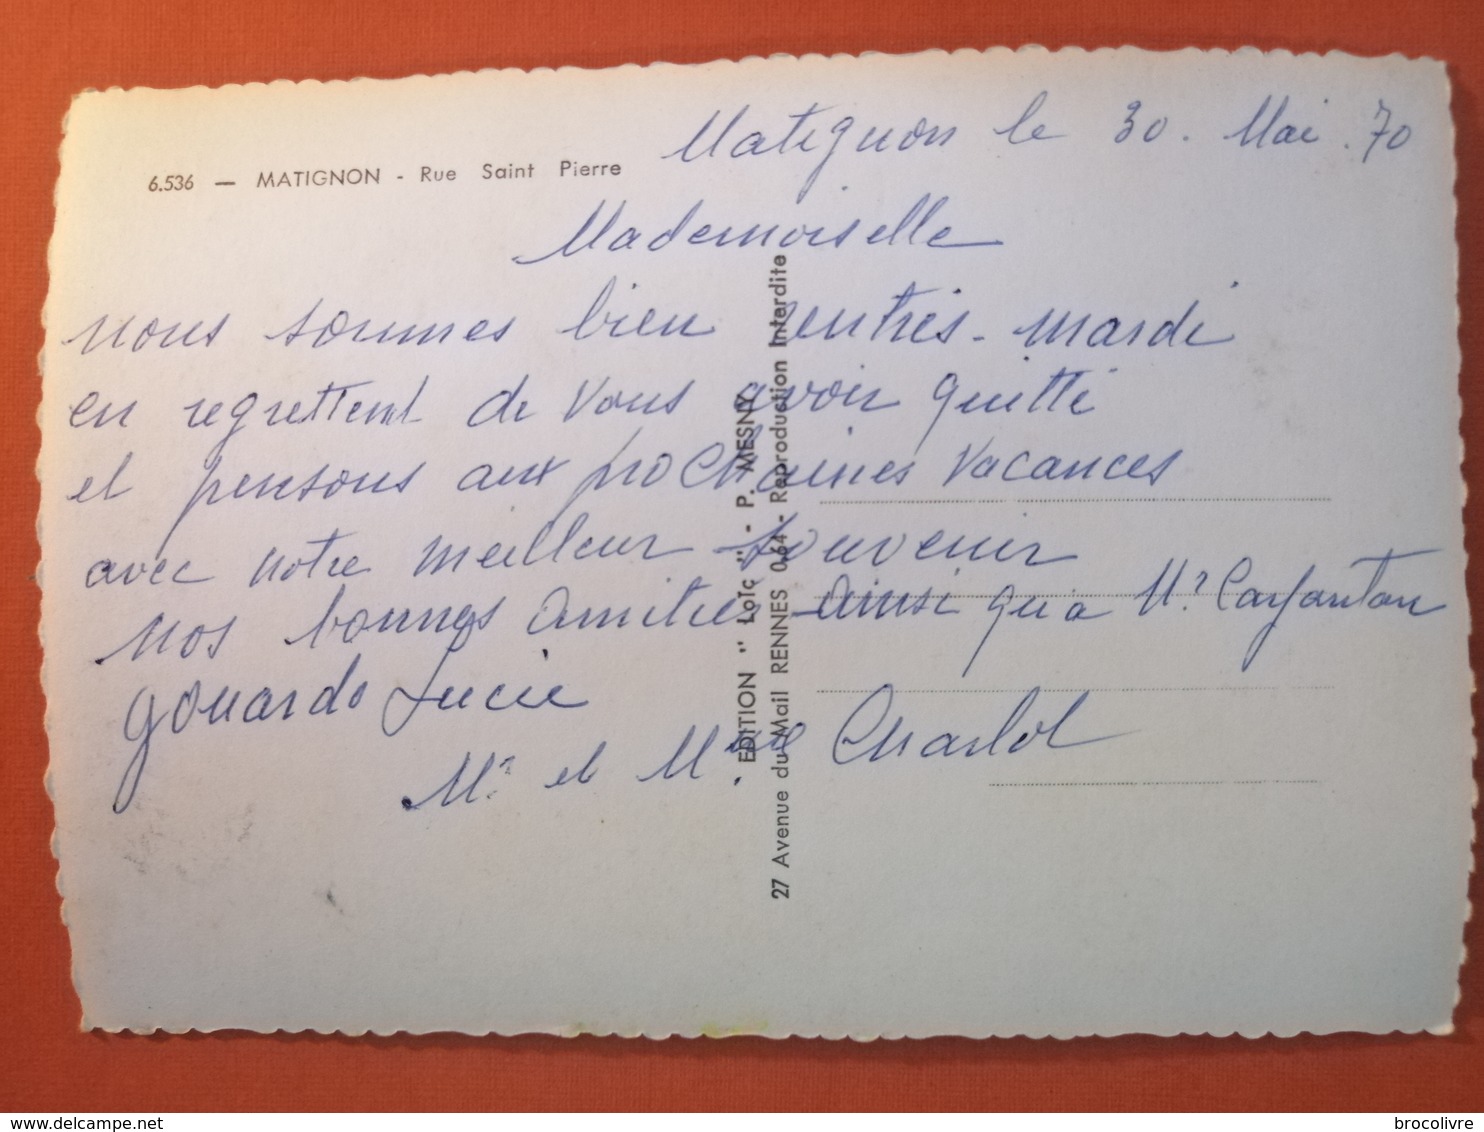 Matignon le 30. Mai. 70
6.536 — MATIGNON - Rue Saint Pierre
Mademoiselle
nous sommes bien rentrés - mardi
en regrettent de vous avoir quitté
et pensons aux prochaines vacances
avec notre meilleur souvenir
Nos bonnes amitiés ainsi qu'a Mr Carfantan
gouardo Lucie
Mr et Mme Charlot
EDITION " LOÏC " - P. MESNY
27 Avenue du Mail RENNES 0.64 - Reproduction Interdite
delcampe.net
brocolivre